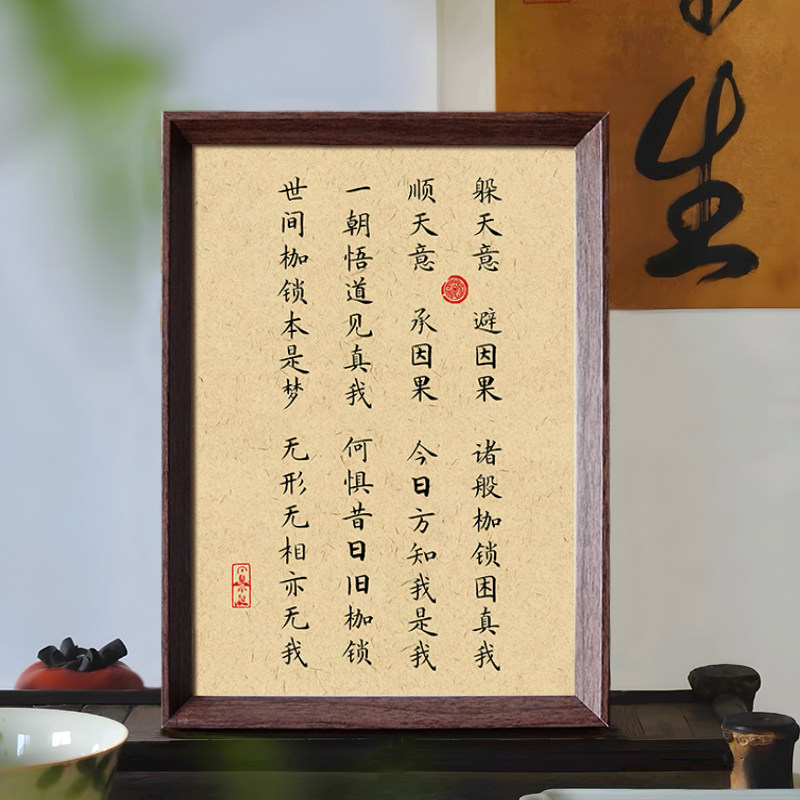 躲天意 避因果 诸般枷锁困真我
顺天意 承因果 今日方知我是我
一朝悟道见真我 何惧昔日旧枷锁
世间枷锁本是梦 无形无相亦无我
生